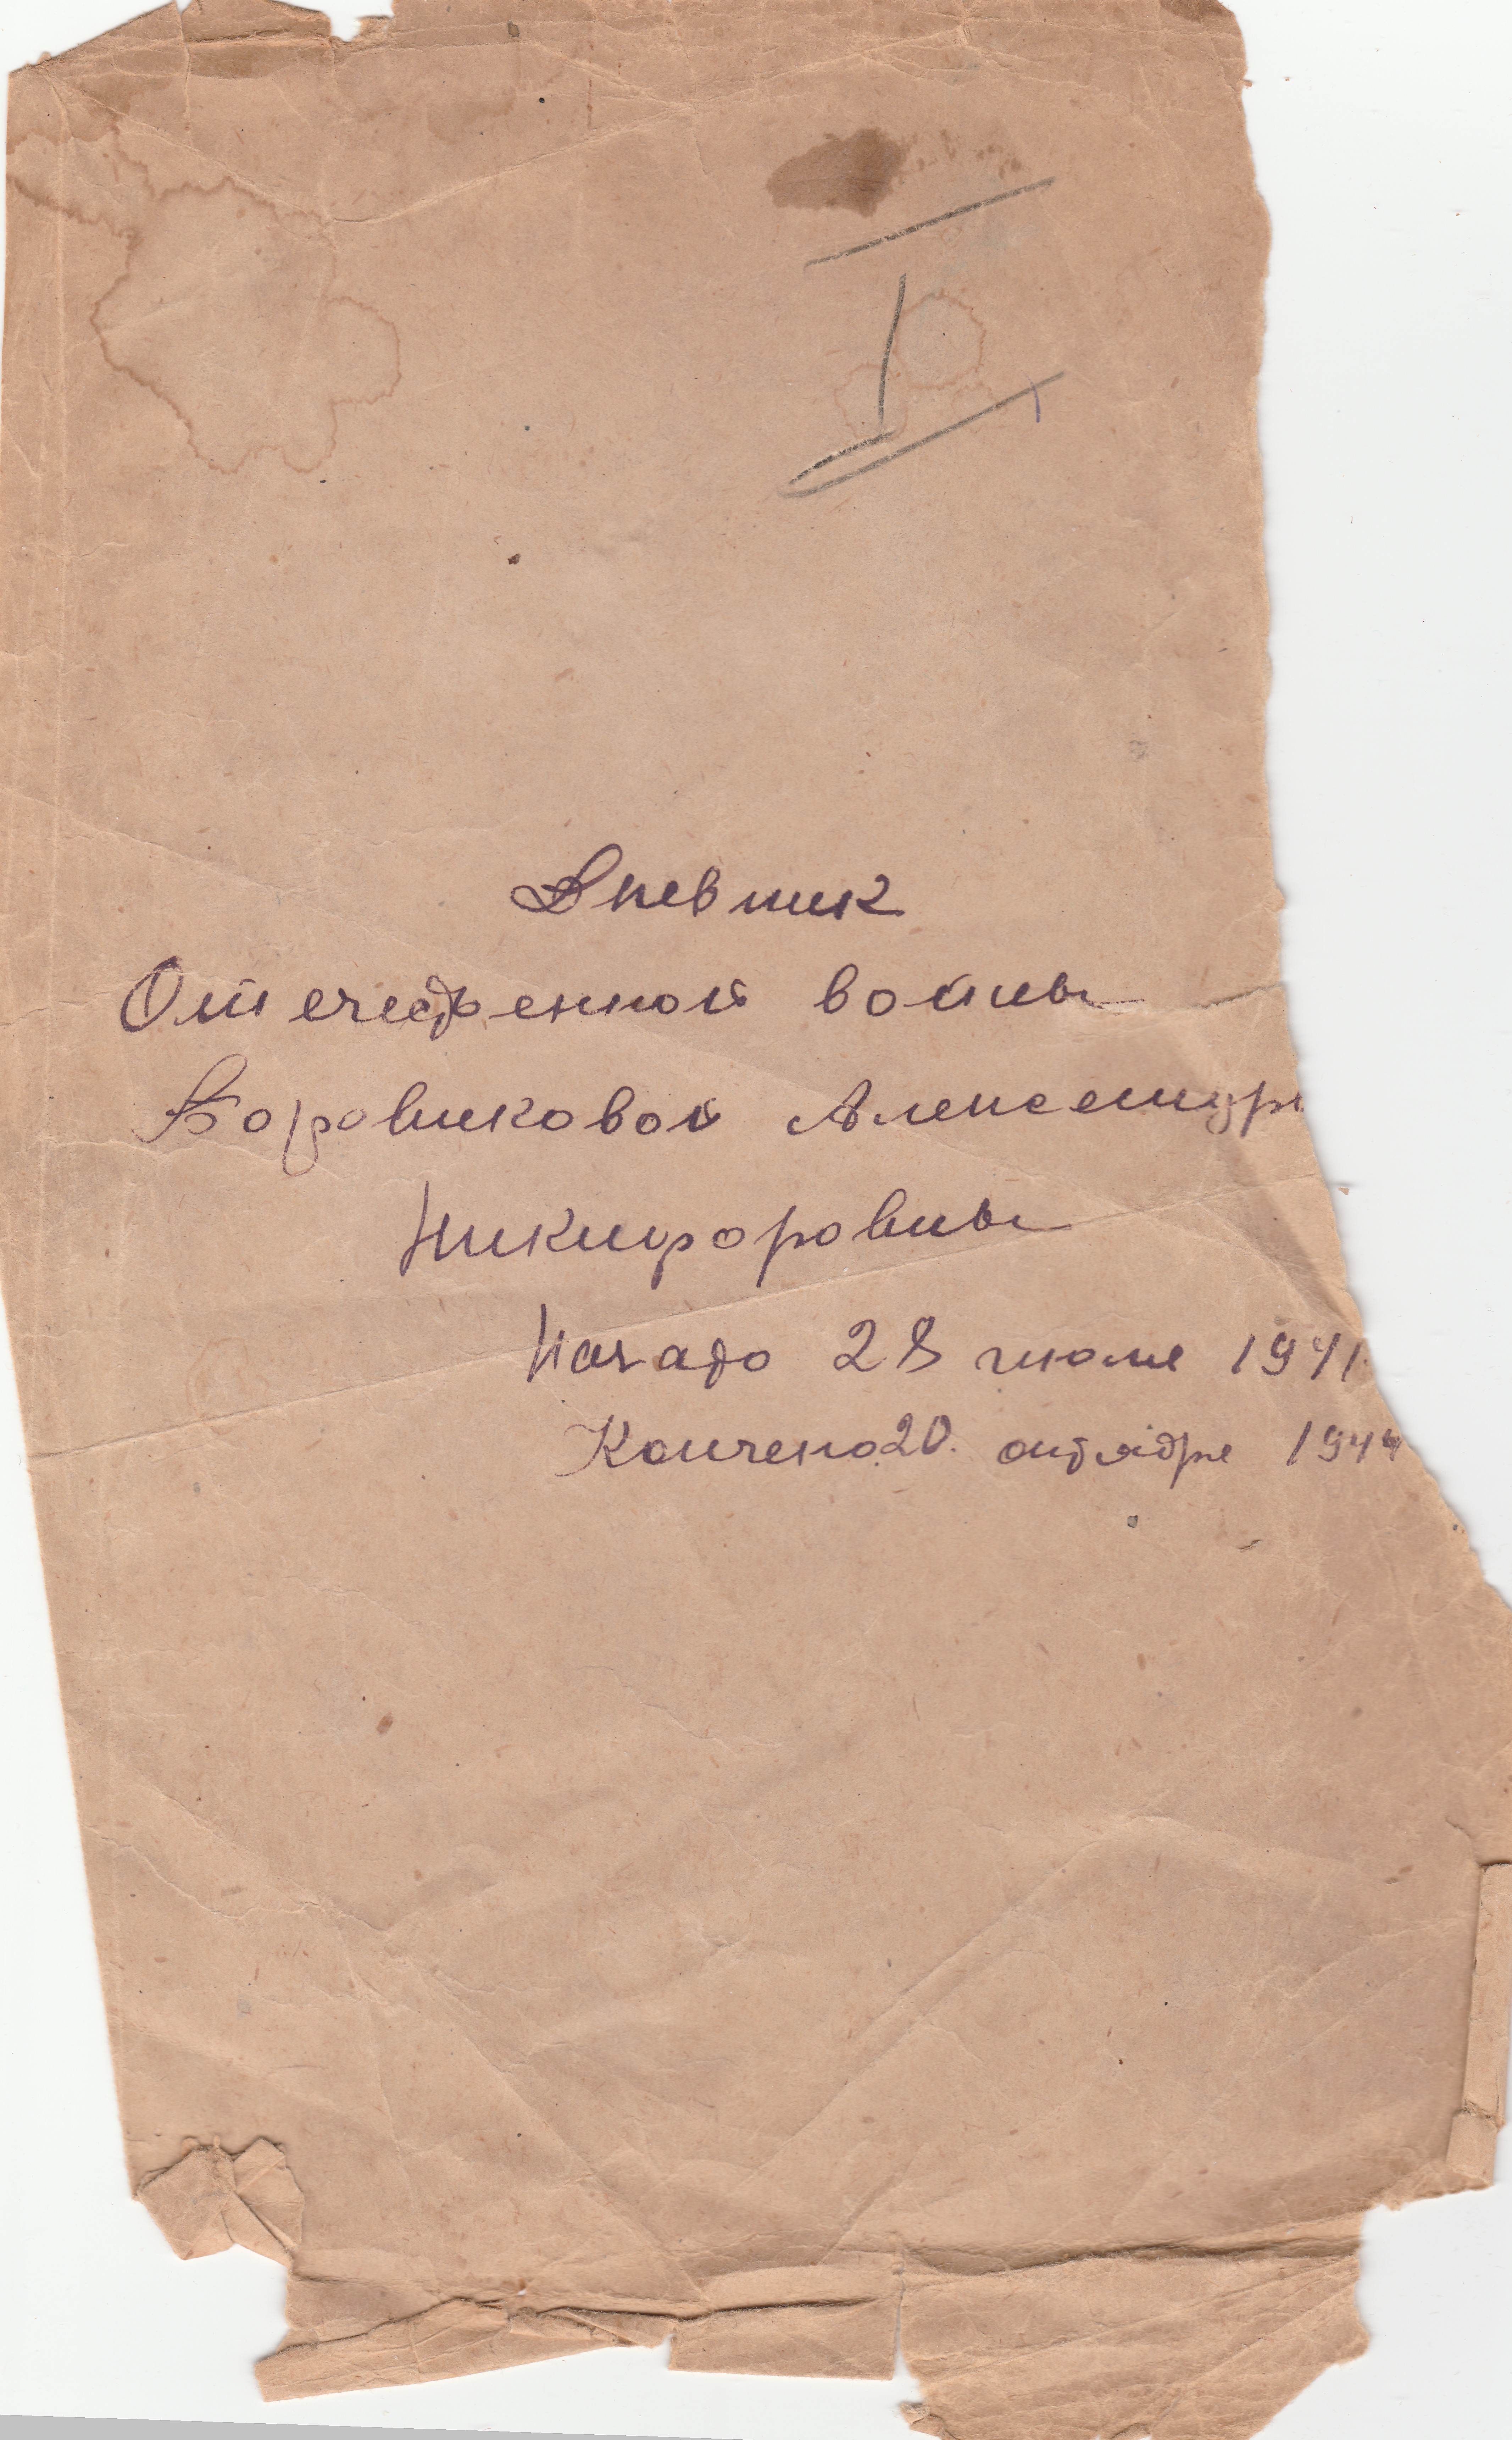 I
Дневник
Отечественной войны
Боровиковой Александры
Никифоровны
Начало 28 июля 1941
Кончено 20. октября 1944